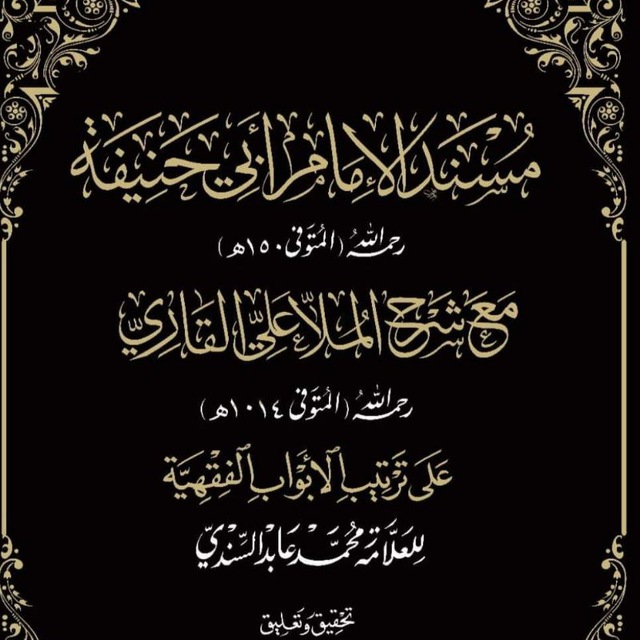 مُسْنَدُ الإِمَامِ أَبِي حَنِيفَة
رحمه الله (المُتوَفى ١٥٠هـ)
مَعَ شَرْحِ المُلَّا عَلِيّ القَارِيِّ
رحمه الله (المُتوَفى ١٠١٤هـ)
عَلَى تَرْتِيبِ الأَبْوَابِ الفِقْهِيَّة
لِلعَلَّامَة مُحَمَّد عَابِد السِّنْدِيّ
تَحْقِيق وَتَعْلِيق